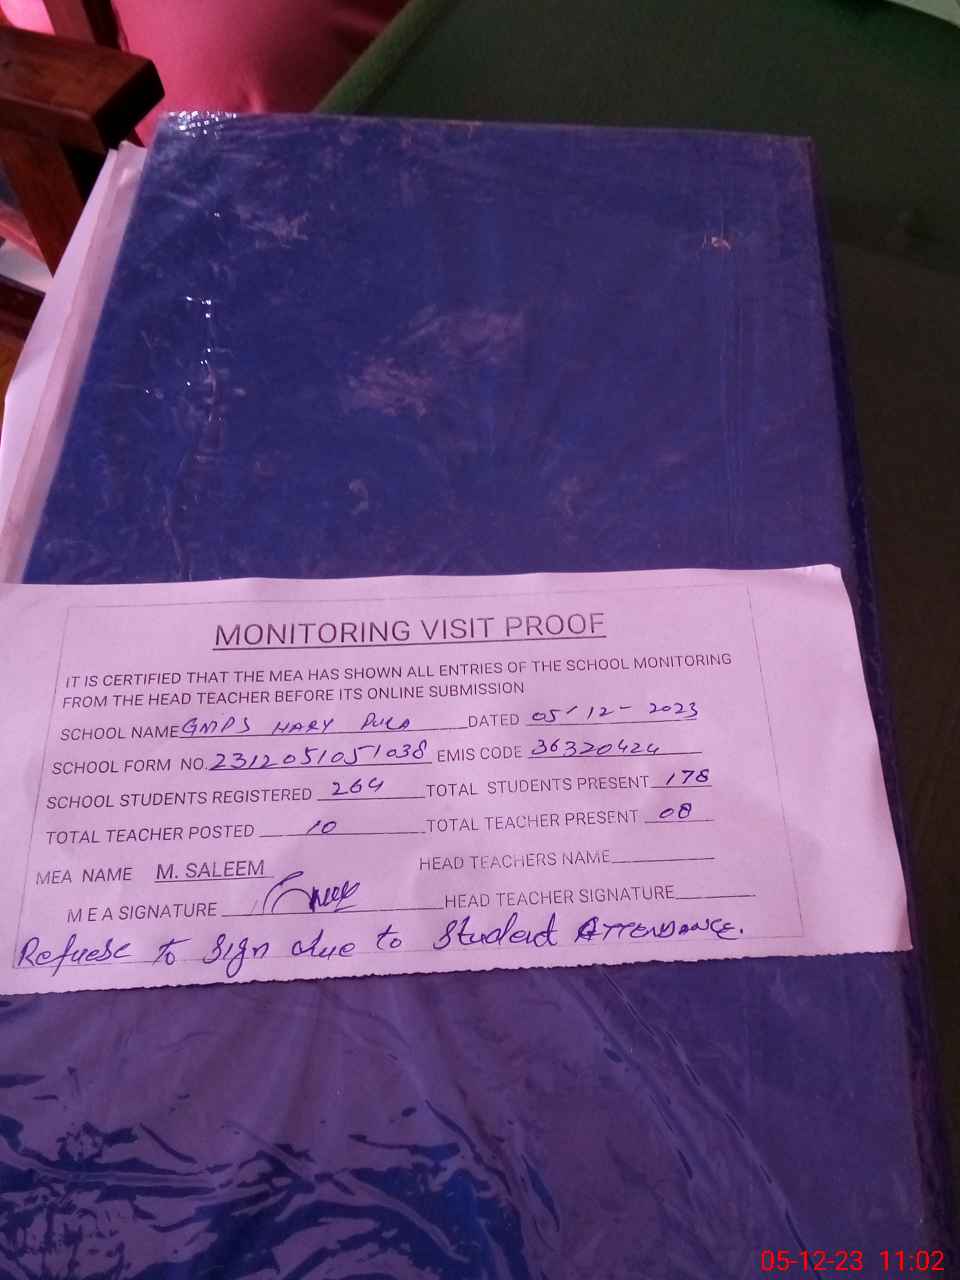 MONITORING VISIT PROOF
IT IS CERTIFIED THAT THE MEA HAS SHOWN ALL ENTRIES OF THE SCHOOL MONITORING
FROM THE HEAD TEACHER BEFORE ITS ONLINE SUBMISSION
SCHOOL NAME GMPS HARY PURA DATED 05-12-2023
SCHOOL FORM NO. 2312051051038 EMIS CODE 36320424
SCHOOL STUDENTS REGISTERED 264 TOTAL STUDENTS PRESENT 178
TOTAL TEACHER POSTED 10 TOTAL TEACHER PRESENT 08
MEA NAME M. SALEEM HEAD TEACHERS NAME
M E A SIGNATURE HEAD TEACHER SIGNATURE
Refuese to Sign due to Student ATTENDANCE.
05-12-23 11:02